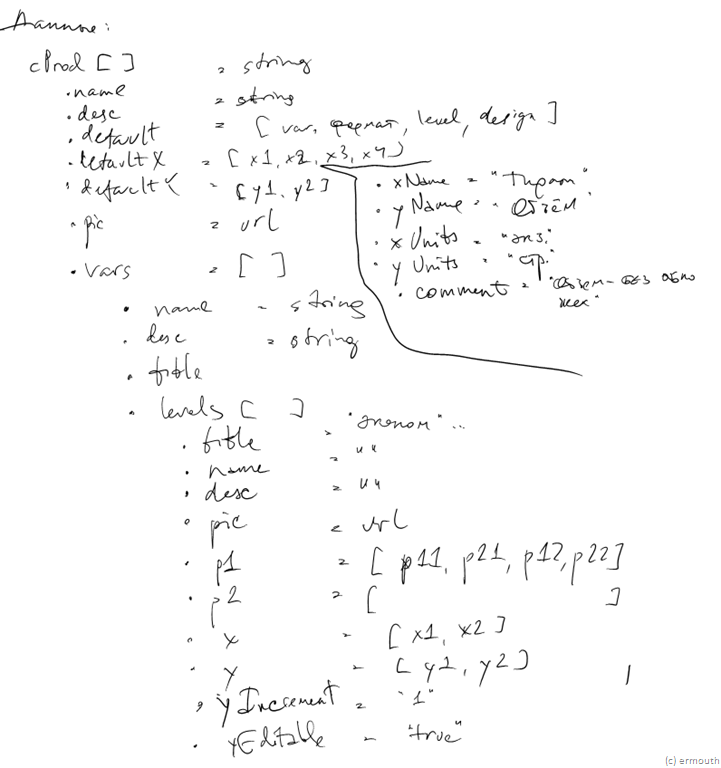 Данные:
cProd [ ] = string
.name = string
.desc
.default = [ var, формат, level, design ]
.defaultX = [ x1, x2, x3, x4 ]
.defaultY = [ y1, y2 ]
.pic = url
.vars = [ ]
. xName = "Тираж"
. yName = "Объём"
. xUnits = "экз."
. yUnits = "стр."
. comment = "Объём - без обложек"
. name = string
. desc = string
. title
. levels [ ]
. title = "эконом" ...
. name = " "
. desc = " "
. pic = url
. p1 = [ p11, p21, p12, p22 ]
. p2 = [ ]
. x = [ x1, x2 ]
. y = [ y1, y2 ]
. yIncrement = "1"
. yEditable = "true"
(c) ermouth